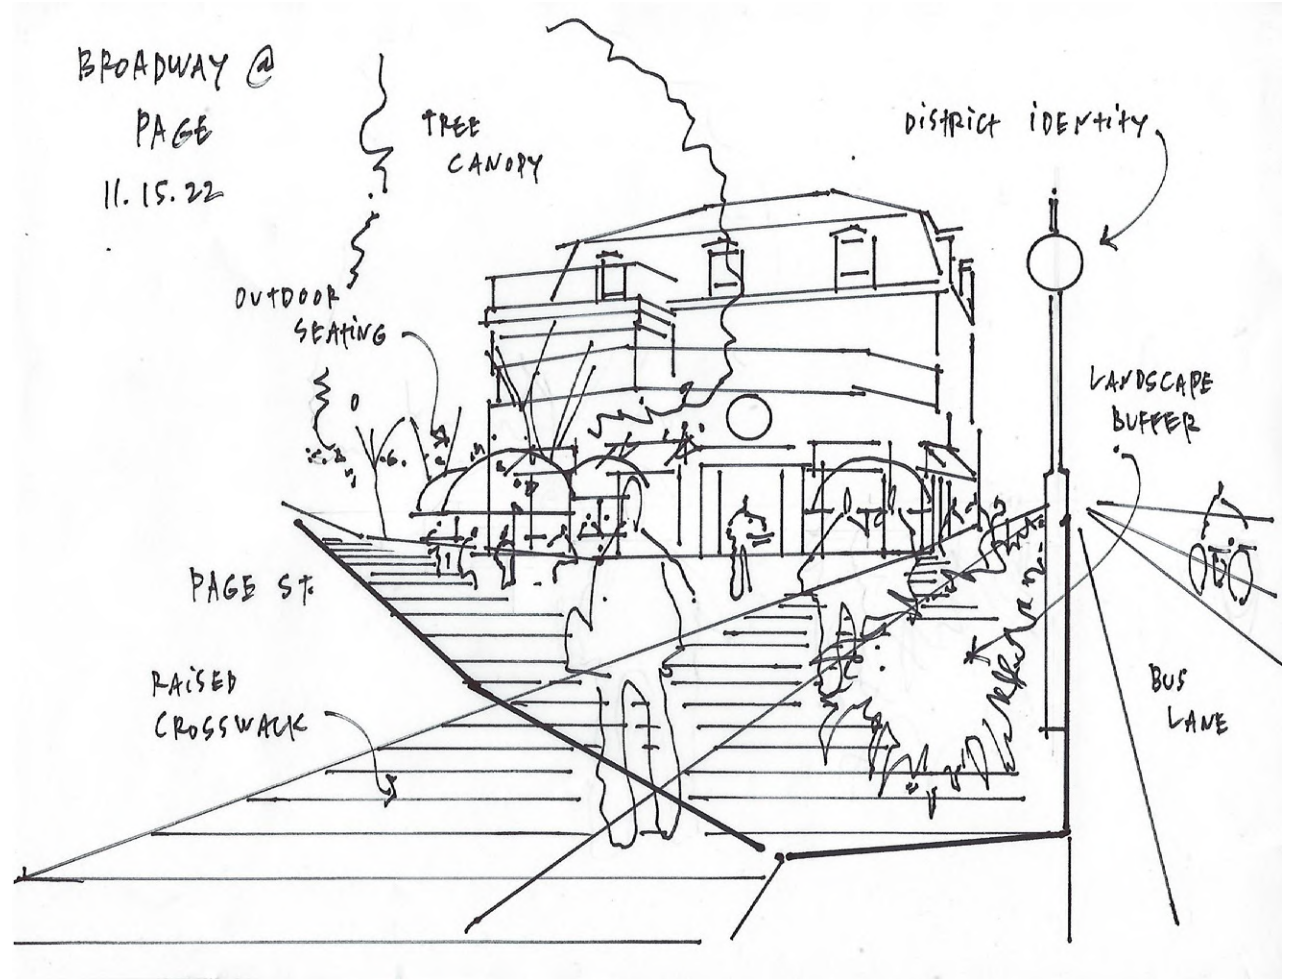 BROADWAY @
PAGE
11.15.22
TREE
CANOPY
DISTRICT IDENTITY
OUTDOOR
SEATING
LANDSCAPE
BUFFER
PAGE ST.
RAISED
CROSSWALK
BUS
LANE